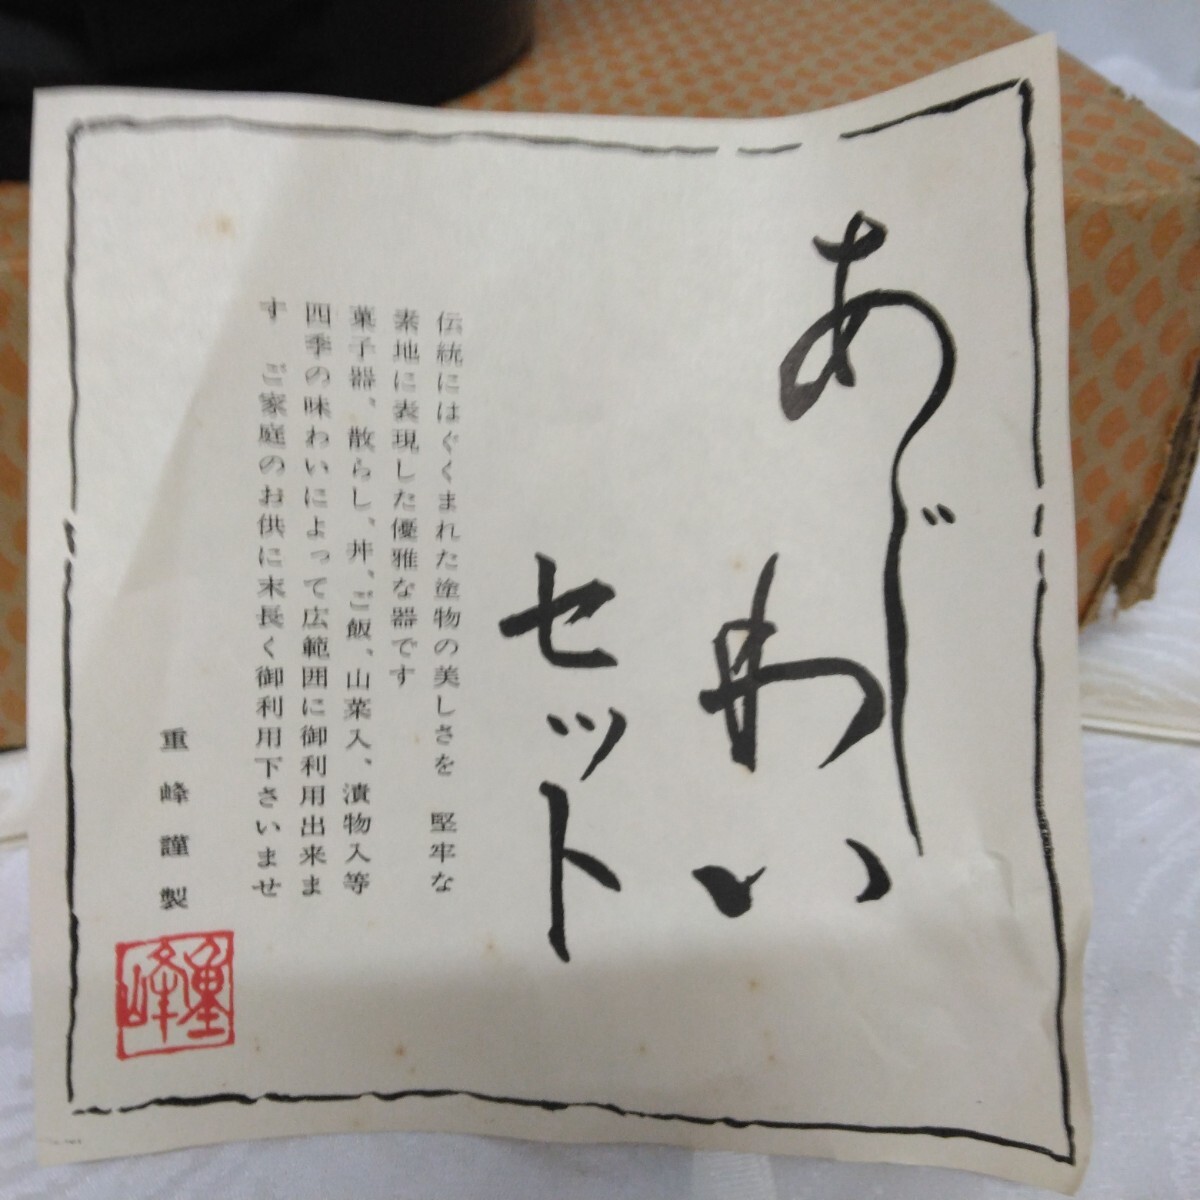 あじわい
セット
伝統にはぐくまれた塗物の美しさを 堅牢な
素地に表現した優雅な器です
菓子器、散らし、丼、ご飯、山菜入、漬物入等
四季の味わいによって広範囲に御利用出来ま
す ご家庭のお供に末長く御利用下さいませ
重峰謹製
重峰